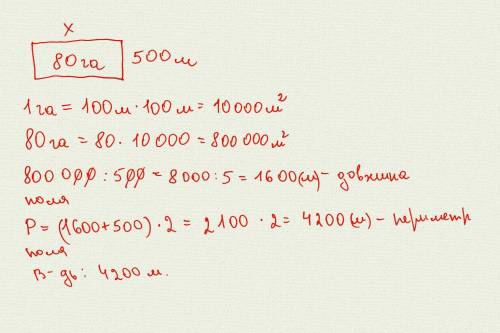 x
80 га 500 м
1 га = 100 м · 100 м = 10 000 м²
80 га = 80 · 10 000 = 800 000 м²
800 000 : 500 = 8000 : 5 = 1600 (м) - довжина
поля
P = (1600 + 500) · 2 = 2100 · 2 = 4200 (м) - периметр
поля
В-дь: 4200 м.